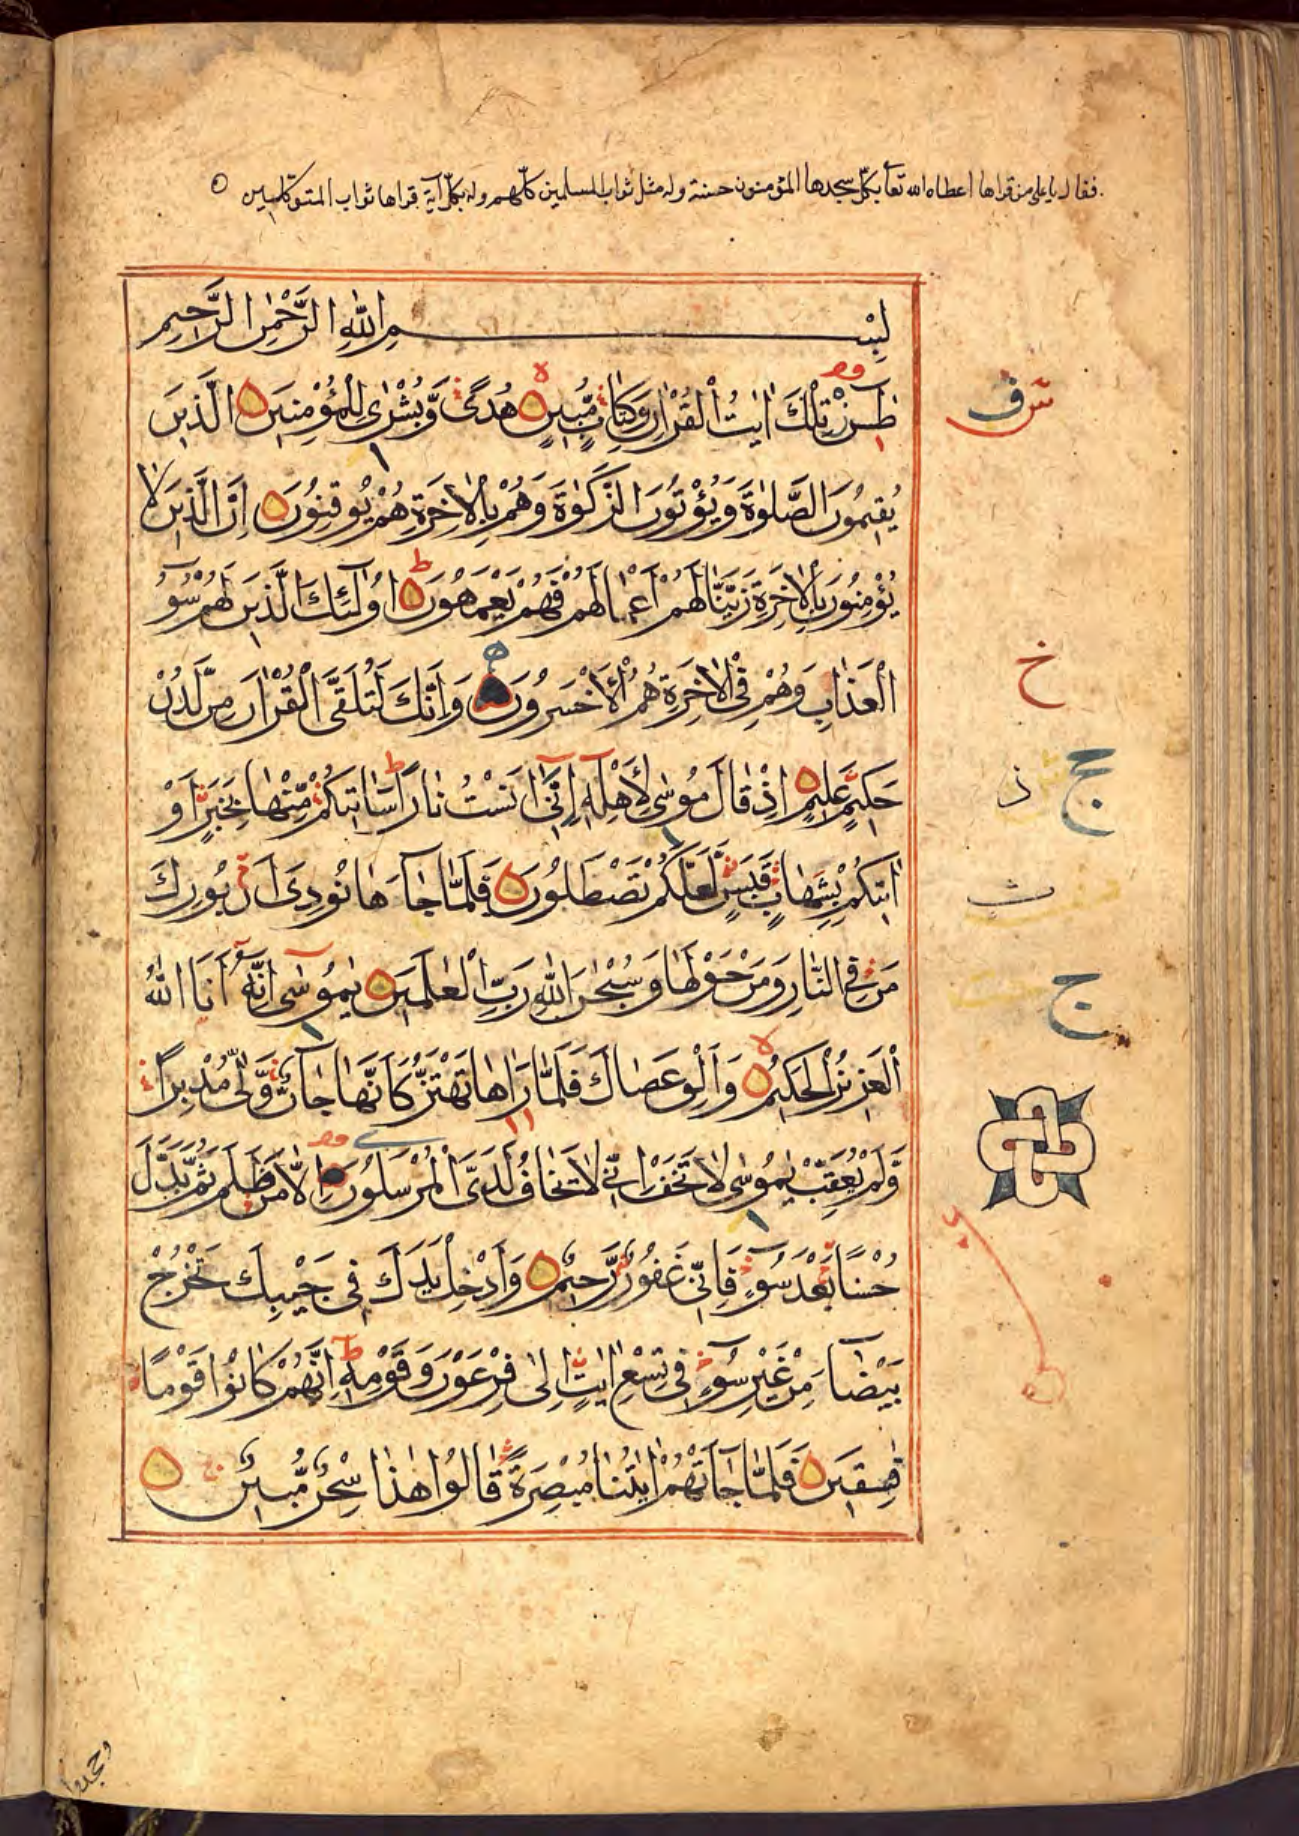 فقال يا على من قراها اعطاه الله تعا بكل سجدها المؤمنون حسنة وله مثل ثواب المسلمين كلهم وله بكل آية قراها ثواب المتوكلين
بِسْمِ اللّٰهِ الرَّحْمٰنِ الرَّحِيمِ
طٰسۤ تِلْكَ اٰيٰتُ الْقُرْاٰنِ وَكِتَابٍ مُّبِينٍ هُدًى وَّبُشْرٰى لِلْمُؤْمِنِينَ الَّذِينَ
يُقِيمُونَ الصَّلٰوةَ وَيُؤْتُونَ الزَّكٰوةَ وَهُمْ بِالْاٰخِرَةِ هُمْ يُوقِنُونَ اِنَّ الَّذِينَ لَا
يُؤْمِنُونَ بِالْاٰخِرَةِ زَيَّنَّا لَهُمْ اَعْمَالَهُمْ فَهُمْ يَعْمَهُونَ اُولٰٓئِكَ الَّذِينَ لَهُمْ سُوۤءُ
الْعَذَابِ وَهُمْ فِى الْاٰخِرَةِ هُمُ الْاَخْسَرُونَ وَاِنَّكَ لَتُلَقَّى الْقُرْاٰنَ مِنْ لَّدُنْ
حَكِيمٍ عَلِيمٍ اِذْ قَالَ مُوسٰى لِاَهْلِهٖٓ اِنِّىٓ اٰنَسْتُ نَارًا سَاٰتِيكُمْ مِّنْهَا بِخَبَرٍ اَوْ
اٰتِيكُمْ بِشِهَابٍ قَبَسٍ لَّعَلَّكُمْ تَصْطَلُونَ فَلَمَّا جَآءَهَا نُودِىَ اَنْ بُورِكَ
مَنْ فِى النَّارِ وَمَنْ حَوْلَهَا وَسُبْحٰنَ اللّٰهِ رَبِّ الْعٰلَمِينَ يٰمُوسٰٓى اِنَّهٗٓ اَنَا اللّٰهُ
الْعَزِيزُ الْحَكِيمُ وَاَلْقِ عَصَاكَ فَلَمَّا رَاٰهَا تَهْتَزُّ كَاَنَّهَا جَآنٌّ وَّلّٰى مُدْبِرًا
وَّلَمْ يُعَقِّبْ يٰمُوسٰى لَا تَخَفْ اِنِّى لَا يَخَافُ لَدَىَّ الْمُرْسَلُونَ اِلَّا مَنْ ظَلَمَ ثُمَّ بَدَّلَ
حُسْنًا بَعْدَ سُوۤءٍ فَاِنِّى غَفُورٌ رَّحِيمٌ وَاَدْخِلْ يَدَكَ فِى جَيْبِكَ تَخْرُجْ
بَيْضَآءَ مِنْ غَيْرِ سُوۤءٍ فِى تِسْعِ اٰيٰتٍ اِلٰى فِرْعَوْنَ وَقَوْمِهٖ اِنَّهُمْ كَانُوا قَوْمًا
فٰسِقِينَ فَلَمَّا جَآءَتْهُمْ اٰيٰتُنَا مُبْصِرَةً قَالُوا هٰذَا سِحْرٌ مُّبِينٌ
خ
ج
ج
وجحدوا